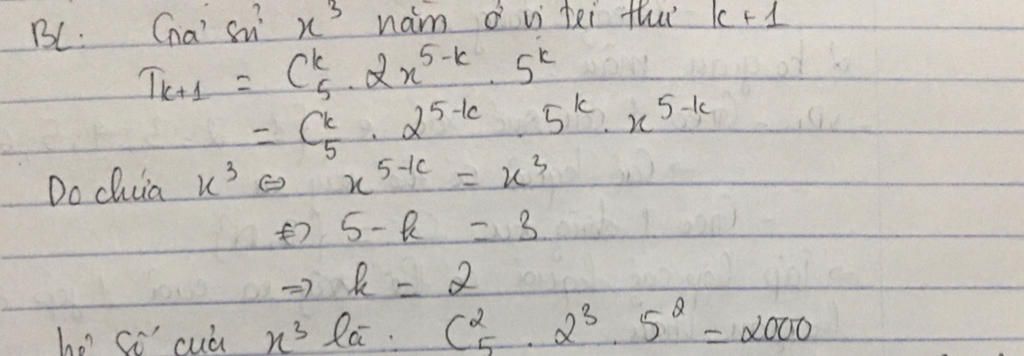 BL: Giả sử x³ nằm ở vị trí thứ k+1
T_{k+1} = C_5^k . 2x^{5-k} . 5^k
= C_5^k . 2^{5-k} . 5^k . x^{5-k}
Do chứa x³ ⇔ x^{5-k} = x³
⇔ 5-k = 3
⇒ k = 2
hệ số của x³ là : C_5^2 . 2³ . 5² = 2000